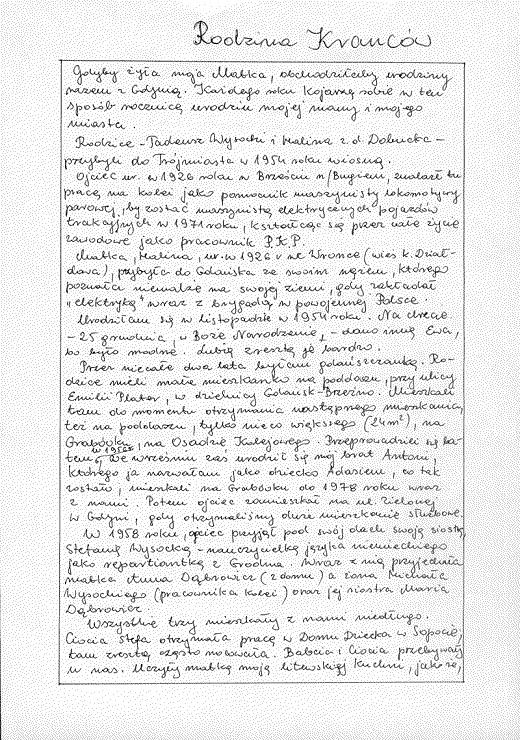 Rodzina Kranców
Gdyby żyła moja Matka, obchodziłaby urodziny
razem z Gdynią. Każdego roku kojarzę sobie w ten
sposób rocznicę urodzin mojej mamy i mojego
miasta.
Rodzice - Tadeusz Wysocki i Halina z d. Dolnicka -
przybyli do Trójmiasta w 1954 roku wiosną.
Ojciec ur. w 1926 roku w Brześciu n/Bugiem, znalazł tu
pracę na kolei jako pomocnik maszynisty lokomotywy
parowej, by zostać maszynistą elektrycznych pojazdów
trakcyjnych w 1971 roku, kształcąc się przez całe życie
zawodowe jako pracownik P.K.P.
Matka, Halina, ur. w 1926 r. we Wronce (wieś k. Dział-
dowa), przybyła do Gdańska ze swoim mężem, którego
poznała niewalże na swojej ziemi, gdy zakładał
"elektrykę" wraz z brygadą w powojennej Polsce.
Urodziłam się w listopadzie w 1954 roku. Na chrzcie
- 25 grudnia, w Boże Narodzenie, - dano imię Ewa,
bo było modne. Lubię zresztą je bardzo.
Przez niecałe dwa lata byłam gdańszczanką. Ro-
dzice mieli małe mieszkanko na poddaszu, przy ulicy
Emilii Plater, w dzielnicy Gdańsk-Brzeźno. Mieszkali
tam do momentu otrzymania następnego mieszkania,
też na poddaszu, tylko nieco większego (24m²), na
Grabówku, na Osadzie Kolejowego. Przeprowadzili się la-
tem w 1956r, we wrześniu zaś urodził się mój brat Antoni,
którego ja nazwałam jako dziecko Adasiem, co tak
zostało, mieszkali na Grabówku do 1978 roku wraz
z nami. Potem ojciec zamieszkał na ul. Zielonej
w Gdyni, gdy otrzymaliśmy duże mieszkanie służbowe.
W 1958 roku, ojciec przyjął pod swój dach swoją siostrę,
Stefanię Wysocką - nauczycielką języka niemieckiego
jako repatriantkę z Grodna. Wraz z nią przyjechała
matka Anna Dąbrowicz (z domu) a żona Michała
Wysockiego (pracownika kolei) oraz jej siostra Maria
Dąbrowicz.
Wszystkie trzy mieszkały z nami niedługo.
Ciocia Stefa otrzymała pracę w Domu Dziecka w Sopocie;
tam zresztą często nocowała. Babcia i Ciocia przebywały
u nas. Uczyły matkę moją litewskiej kuchni, jako że,